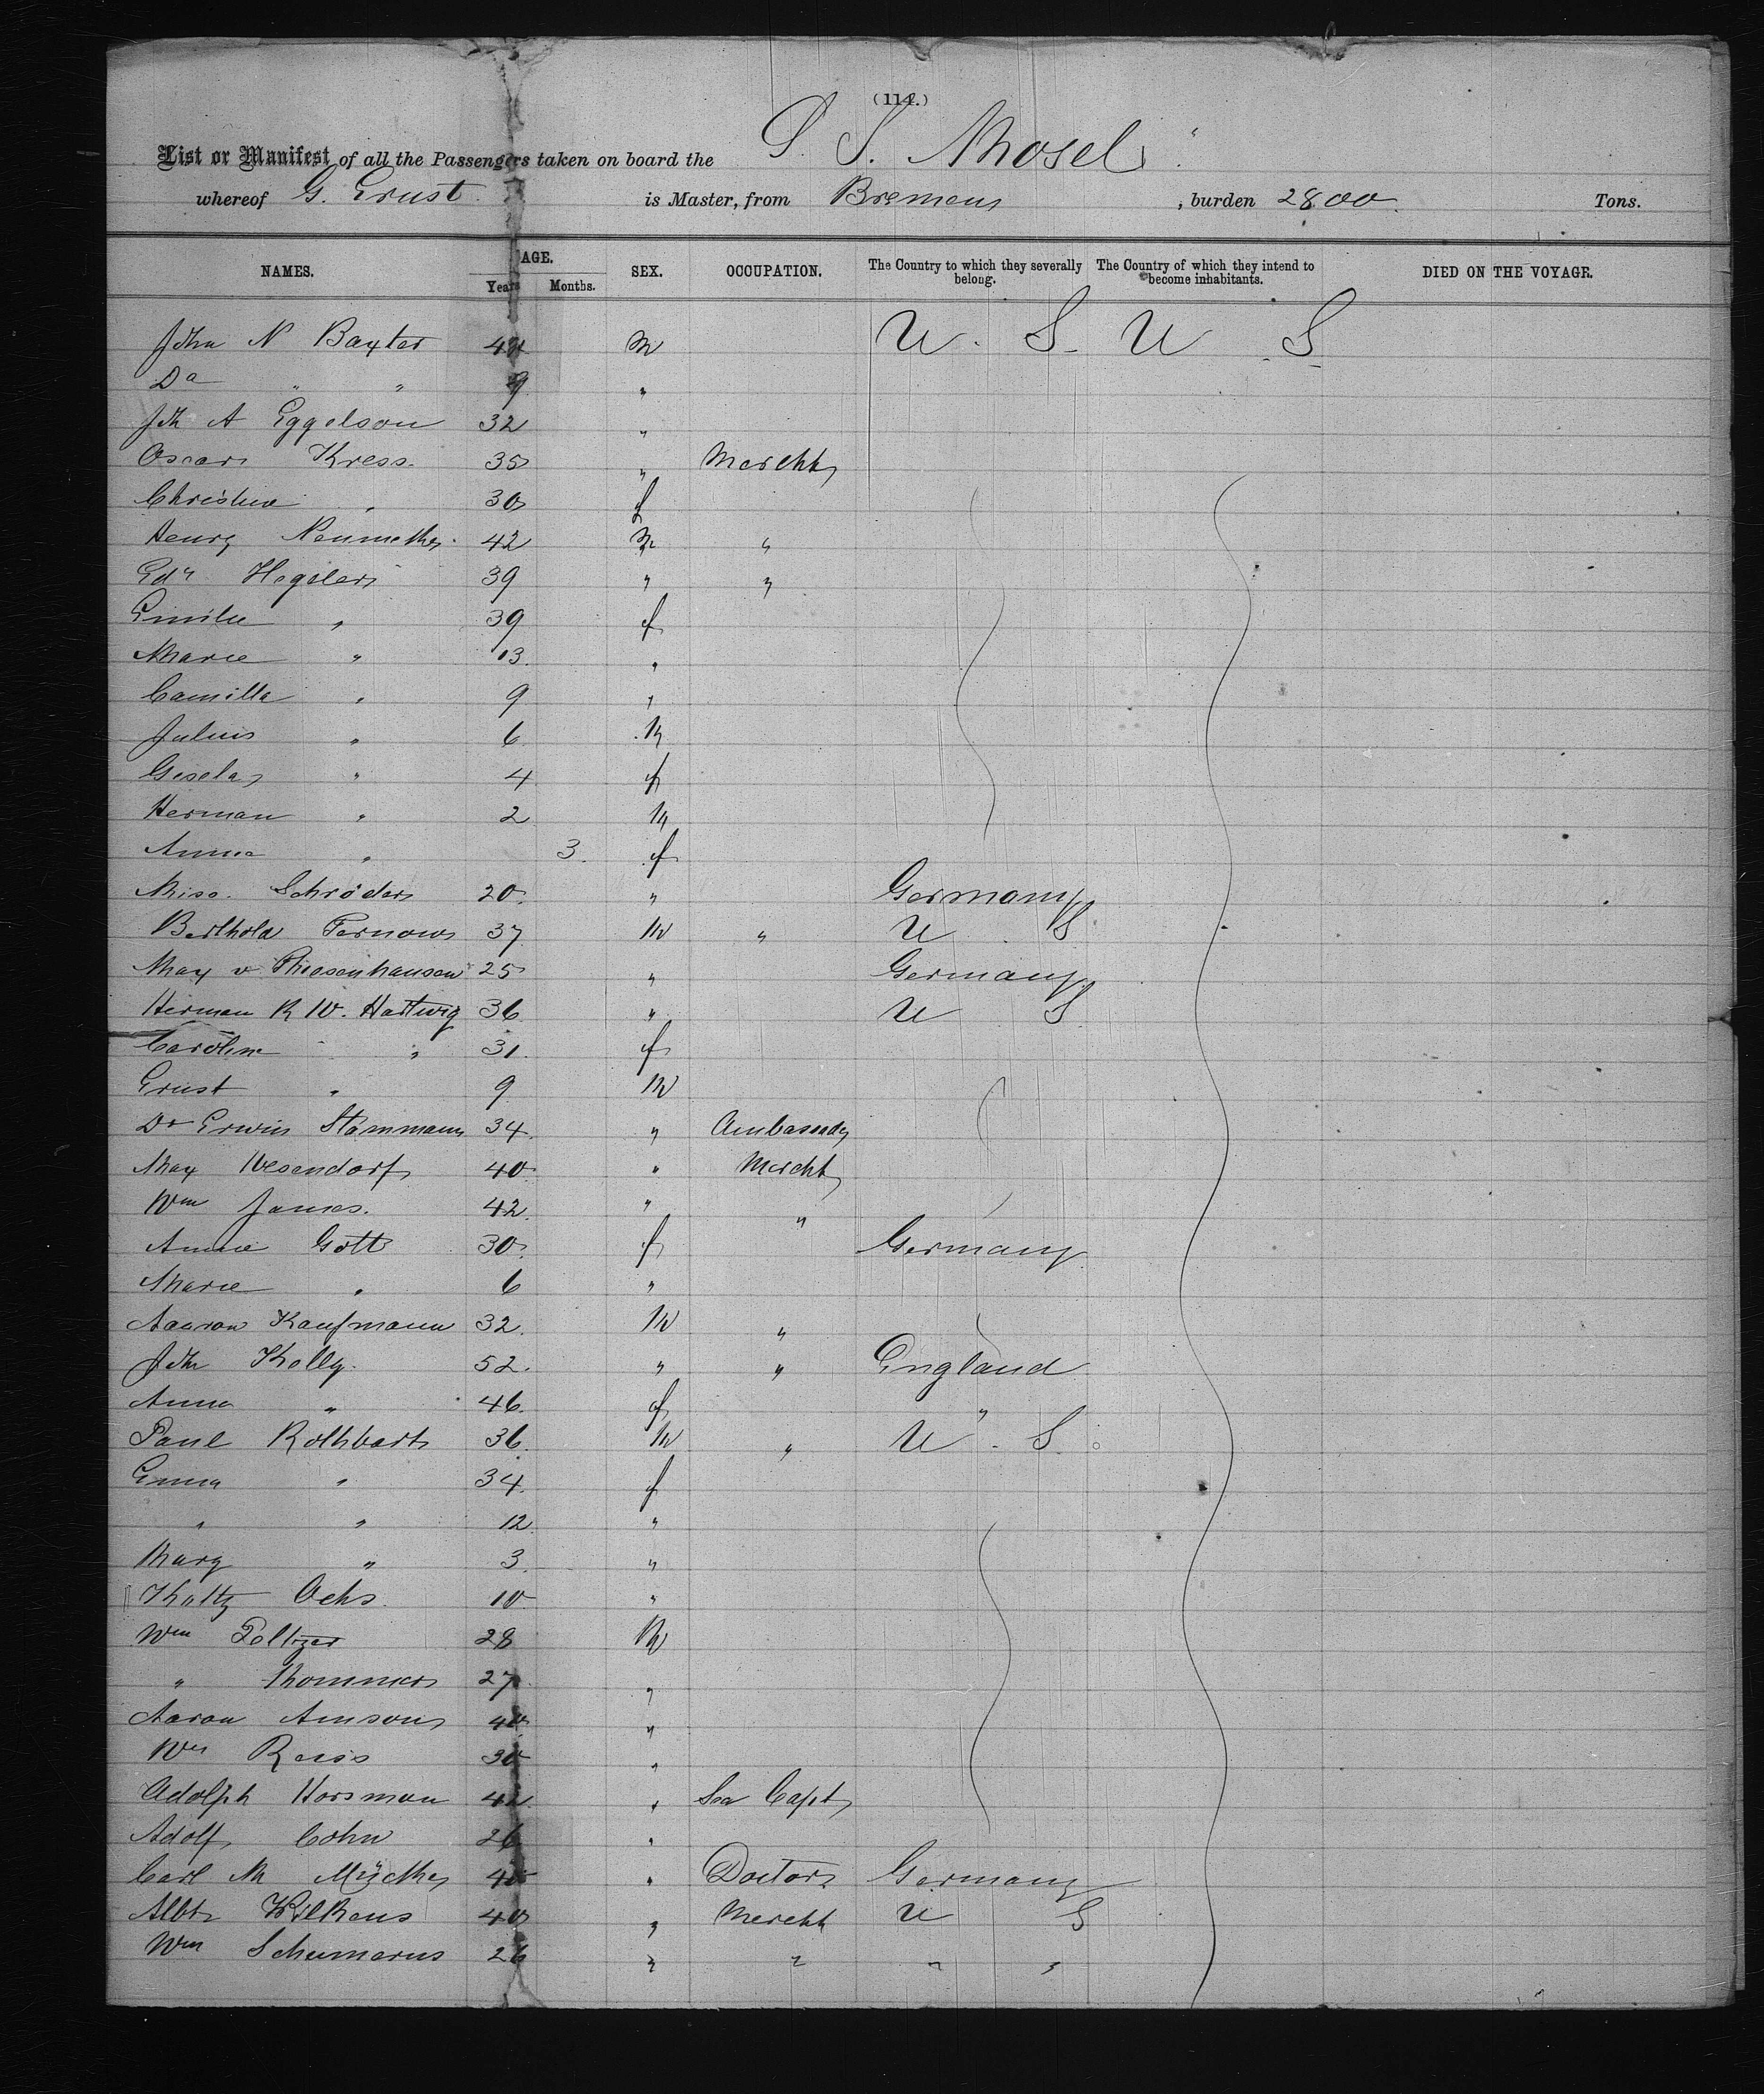 (114.)
List or Manifest of all the Passengers taken on board the S. S. Mosel
whereof G. Ernst is Master, from Bremen, burden 2800 Tons.
NAMES. AGE. SEX. OCCUPATION. The Country to which they severally belong. The Country of which they intend to become inhabitants. DIED ON THE VOYAGE.
Years Months.
John N Baxter M U. S. U S
Do " " 9 "
Jh A Eggelson 32 "
Oscar Kress. 35 " Mercht
Christine " 30 f
Henry 42 M "
Edw Hegeler 39 " "
Emilie " 39 f
Marie " 13. "
Camilla " 9 "
Julius " 6 M
Gisela " 4 f
Herman " 2 M
Anna " 3. f
Miss. Schröder 20. " Germany
Berthold Fernow 37 M " U. S
Max v. Thiesenhausen 25 " Germany
Herman R W. Hartwig 36 " U S
Caroline " 31. f
Ernst " 9 M
Dr Erwin Stammann 34. " Ambassadr
Max Wesendorf 40 " Mercht
Wm James. 42. " "
Annie Gott 30. f Germany
Marie " 6 "
Aaaron Kaufmann 32. M "
Jhn Kelly. 52. " " England
Anna " 46. f "
Paul Rothbart 36. M " U. S.
Emma " 34. f
" " 12. "
Mary " 3. "
Ochs. 10 "
Wm Peltzer 28 M
" 27 "
Aaron Amson 40 "
Wm Reiss 30 "
Adolph Horsman 42 " Sea Capt
Adolf Cohn 26 "
Carl M Mücke 40 " Doctor Germany
Albt Wilkens 40 " Mercht U S
Wm Schumerus 26 " " " "